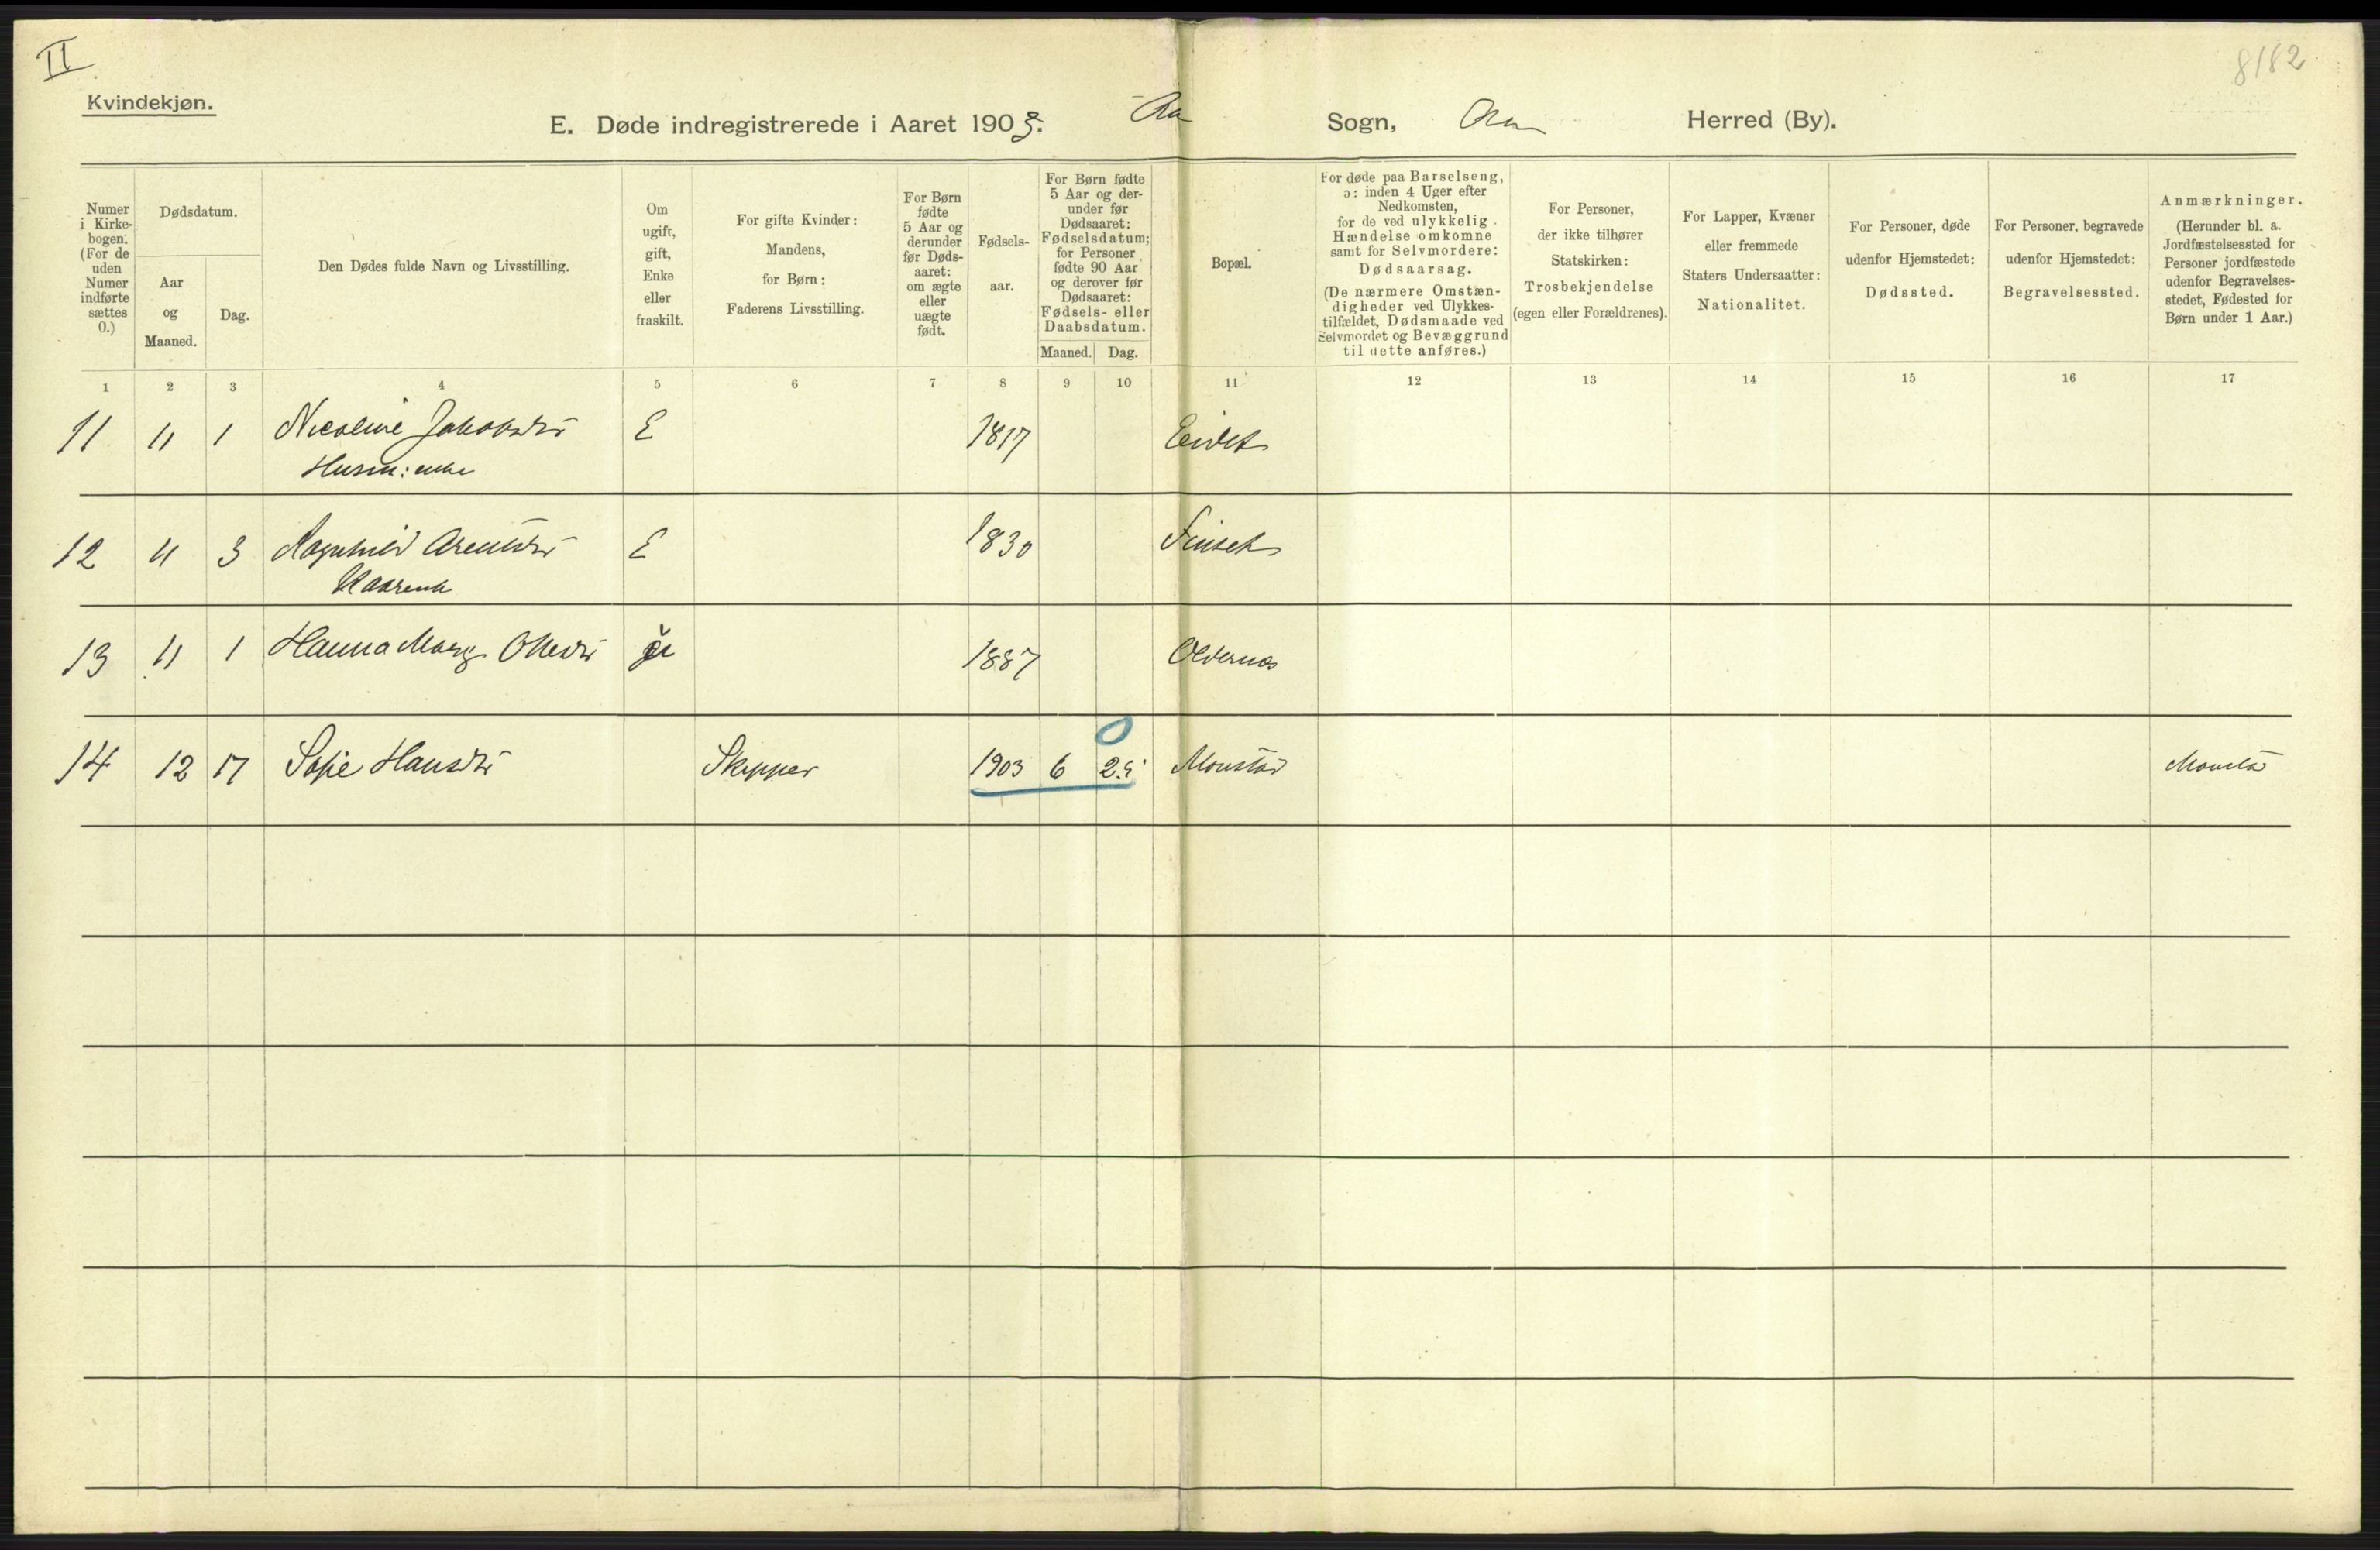 II
8182
Kvindekjøn.
E. Døde indregistrerede i Aaret 1903. Aa Sogn, Aa Herred (By).
Numer i Kirkebogen. (For de uden Numer indførte sættes 0.)
Dødsdatum.
Aar og Maaned.
Dag.
Den Dødes fulde Navn og Livsstilling.
Om ugift, gift, Enke eller fraskilt.
For gifte Kvinder: Mandens, for Børn: Faderens Livsstilling.
For Børn fødte 5 Aar og derunder før Dødsaaret: om ægte eller uægte født.
Fødselsaar.
For Børn fødte 5 Aar og derunder før Dødsaaret: Fødselsdatum; for Personer fødte 90 Aar og derover før Dødsaaret: Fødsels- eller Daabsdatum.
Maaned. Dag.
Bopæl.
For døde paa Barselseng, ɔ: inden 4 Uger efter Nedkomsten, for de ved ulykkelig Hændelse omkomne samt for Selvmordere: Dødsaarsag. (De nærmere Omstændigheder ved Ulykkestilfældet, Dødsmaade ved Selvmordet og Bevæggrund til dette anføres.)
For Personer, der ikke tilhører Statskirken: Trosbekjendelse (egen eller Forældrenes).
For Lapper, Kvæner eller fremmede Staters Undersaatter: Nationalitet.
For Personer, døde udenfor Hjemstedet: Dødssted.
For Personer, begravede udenfor Hjemstedet: Begravelsessted.
Anmærkninger. (Herunder bl. a. Jordfæstelsessted for Personer jordfæstede udenfor Begravelsesstedet, Fødested for Børn under 1 Aar.)
1 2 3 4 5 6 7 8 9 10 11 12 13 14 15 16 17
11 11 1 Nicoline Jakobsdtr E 1817 Eidet
Husm: enke
12 11 3 Ragnhild Arentsdtr E 1830 Finset
Kaarenk
13 11 1 Hanna Marg Olsdtr 1887 Oldernæs
14 12 17 Sofie Hansdtr Skipper 1903 6 25 Monstad Monstad
0